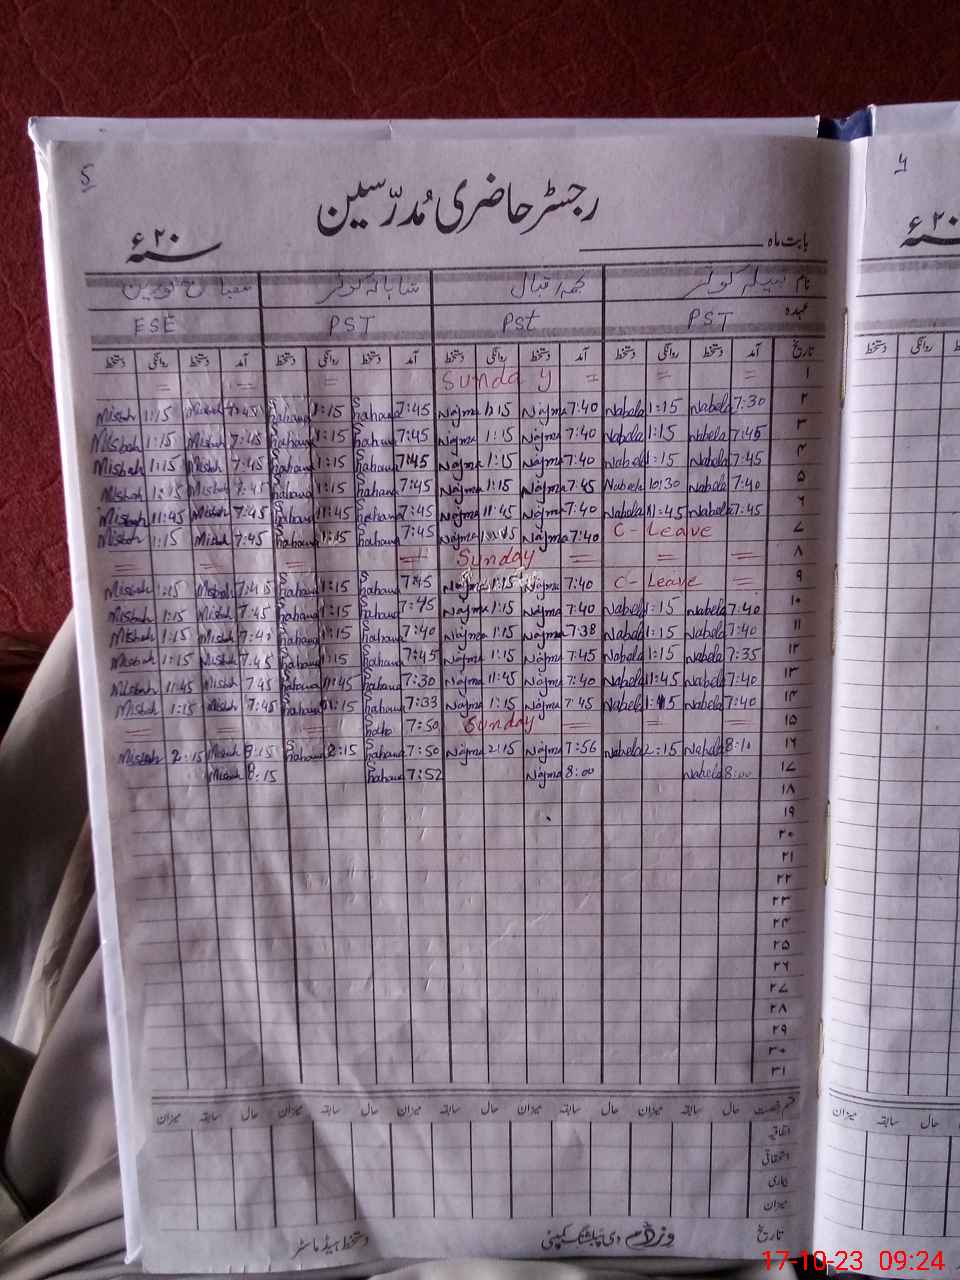 5
رجسٹر حاضری مُدرّسین
بابت ماہ
۲۰ء
نام نبیلہ کوثر نجمہ اقبال شبانہ کوثر مصباح نورین
عہدہ PST Pst PST ESE
تاریخ آمد دستخط روانگی دستخط آمد دستخط روانگی دستخط آمد دستخط روانگی دستخط آمد دستخط روانگی دستخط
۱ = = = Sunday = = =
۲ Misbah 1:15 Misbah 7:45 Shahana 1:15 Shahana 7:45 Najma 1:15 Najma 7:40 Nabela 1:15 Nabela 7:30
۳ Misbah 1:15 Misbah 7:45 Shahana 1:15 Shahana 7:45 Najma 1:15 Najma 7:40 Nabela 1:15 Nabela 7:45
۴ Misbah 1:15 Misbah 7:45 Shahana 1:15 Shahana 7:45 Najma 1:15 Najma 7:40 Nabela 1:15 Nabela 7:45
۵ Misbah 1:15 Misbah 7:45 Shahana 1:15 Shahana 7:45 Najma 1:15 Najma 7:45 Nabela 10:30 Nabela 7:40
۶ Misbah 11:45 Misbah 7:45 Shahana 11:45 Shahana 7:45 Najma 11:45 Najma 7:40 Nabela 11:45 Nabela 7:45
۷ Misbah 1:15 Misbah 7:45 Shahana 1:15 Shahana 7:45 Najma Najma 7:40 C-Leave
۸ = = = = Sunday = = =
۹ Misbah 1:15 Misbah 7:45 Shahana 1:15 Shahana 7:45 Najma 1:15 Najma 7:40 C-Leave =
۱۰ Misbah 1:15 Misbah 7:45 Shahana 1:15 Shahana 7:45 Najma 1:15 Najma 7:40 Nabela 1:15 Nabela 7:40
۱۱ Misbah 1:15 Misbah 7:40 Shahana 1:15 Shahana 7:40 Najma 1:15 Najma 7:38 Nabela 1:15 Nabela 7:40
۱۲ Misbah 1:15 Misbah 7:45 Shahana 1:15 Shahana 7:45 Najma 1:15 Najma 7:45 Nabela 1:15 Nabela 7:35
۱۳ Misbah 11:45 Misbah 7:45 Shahana 11:45 Shahana 7:30 Najma 11:45 Najma 7:40 Nabela 11:45 Nabela 7:40
۱۴ Misbah 1:15 Misbah 7:45 Shahana 1:15 Shahana 7:33 Najma 1:15 Najma 7:45 Nabela 1:15 Nabela 7:40
۱۵ = = = 7:50 Sunday = = =
۱۶ Misbah 2:15 Misbah 8:15 Shahana 2:15 Shahana 7:50 Najma 2:15 Najma 7:56 Nabela 2:15 Nabela 8:10
۱۷ Misbah 8:15 Shahana 7:52 Najma 8:00 Nabela 8:00
۱۸
۱۹
۲۰
۲۱
۲۲
۲۳
۲۴
۲۵
۲۶
۲۷
۲۸
۲۹
۳۰
۳۱
قسم رخصت حال سابقہ میزان حال سابقہ میزان حال سابقہ میزان حال سابقہ میزان
اتفاقیہ
استحقاقی
بیماری
میزان
تاریخ
دی پبلشنگ کمپنی
دستخط ہیڈ ماسٹر
۲۰ء
میزان سابقہ حال
17-10-23 09:24